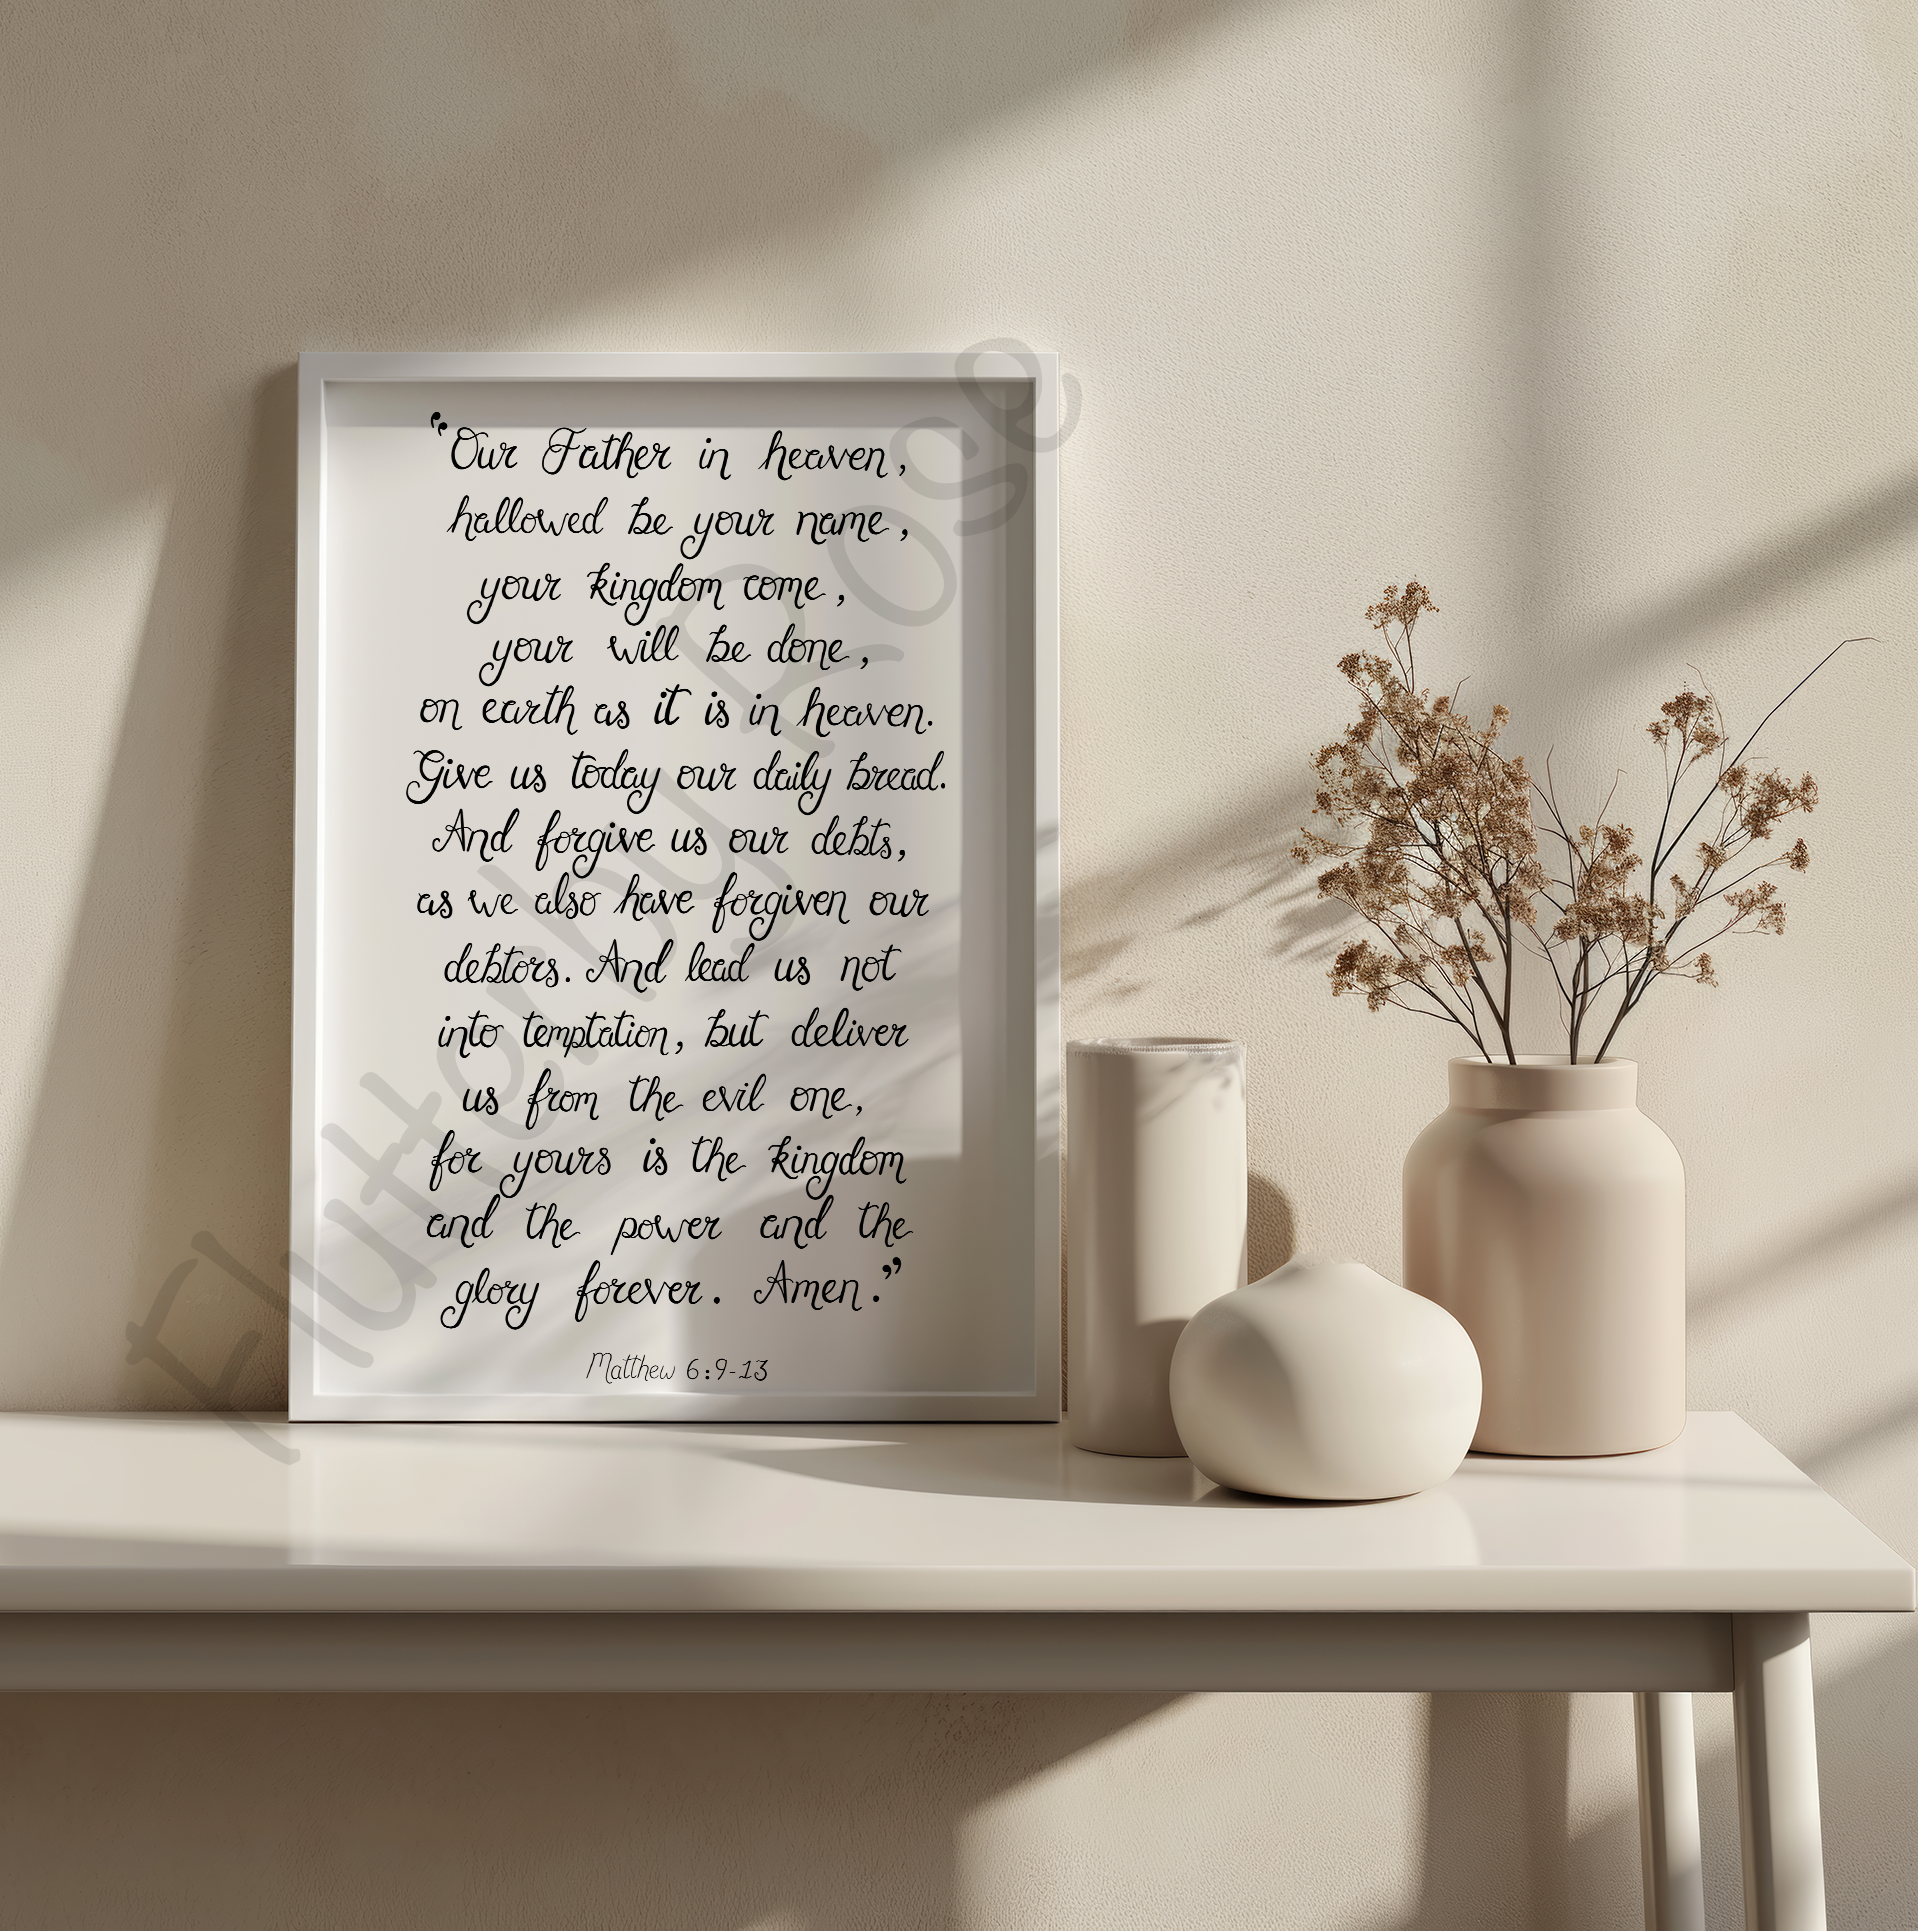 “Our Father in heaven,
hallowed be your name,
your kingdom come,
your will be done,
on earth as it is in heaven.
Give us today our daily bread.
And forgive us our debts,
as we also have forgiven our
debtors. And lead us not
into temptation, but deliver
us from the evil one,
for yours is the kingdom
and the power and the
glory forever. Amen.”
Matthew 6:9-13
Flutter by Rose